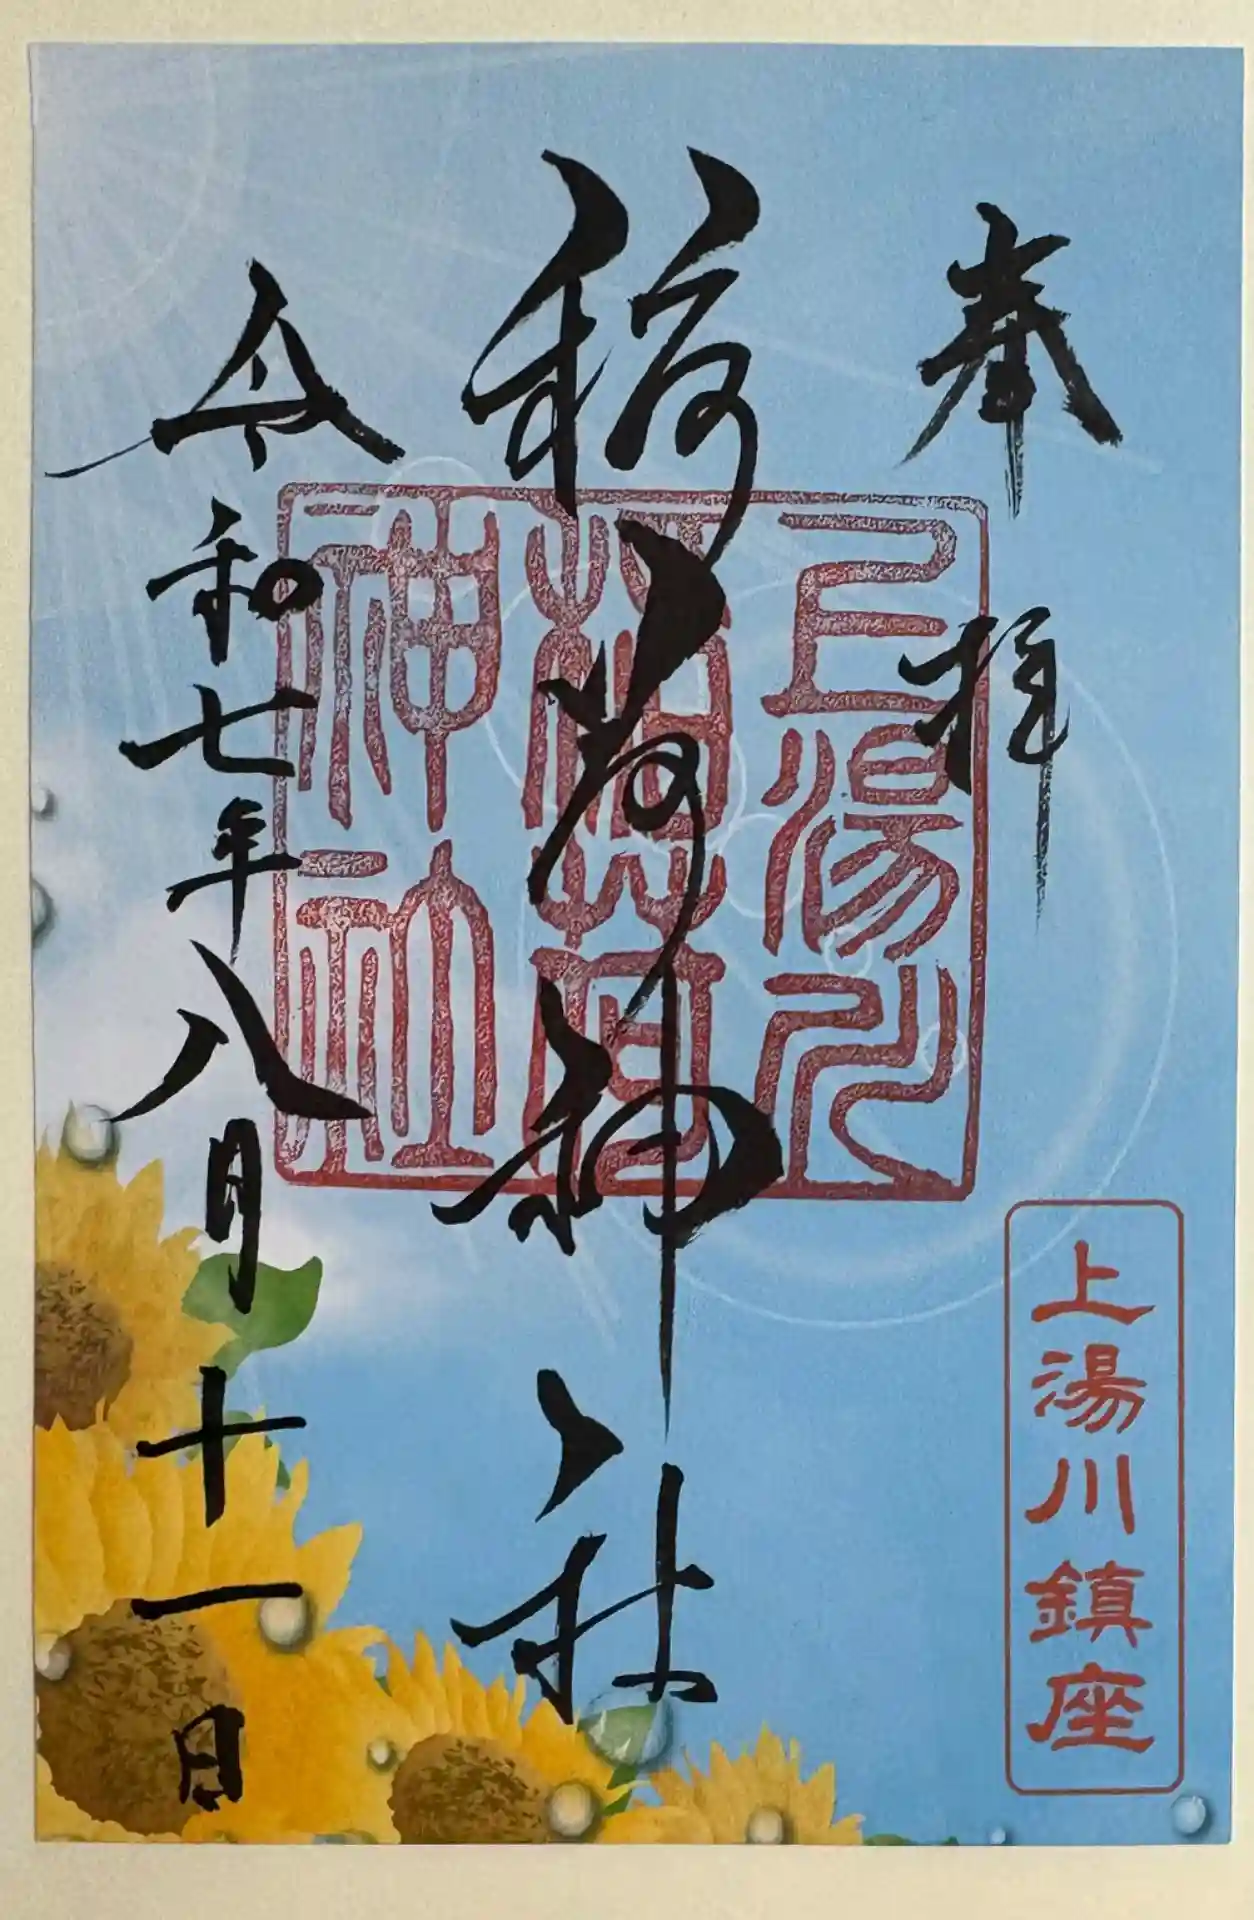 奉拝
上湯川鎮座
稲荷神社
上湯川
稲荷
神社
令和七年八月十一日